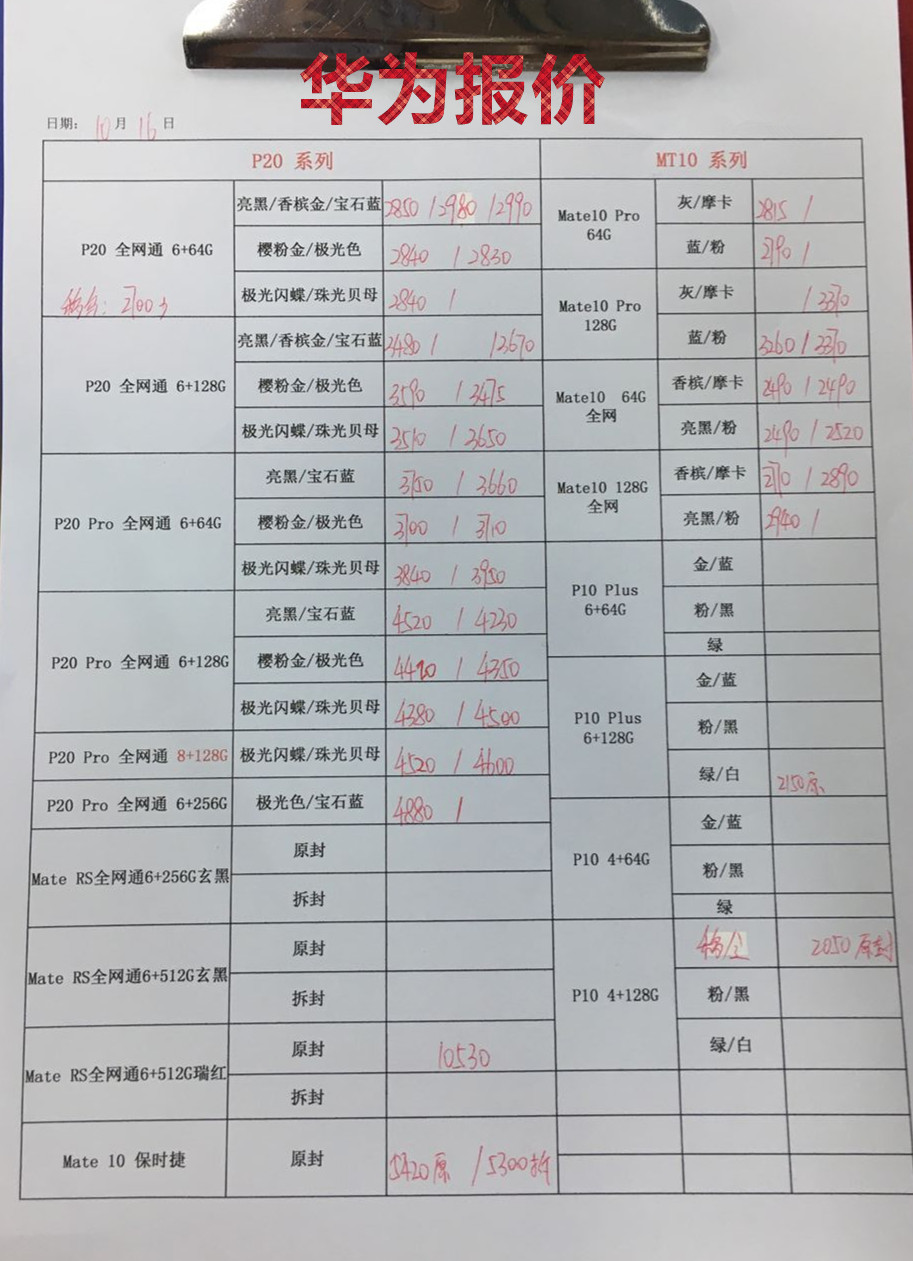 华为报价
日期: 10月16日
P20 系列
P20 全网通 6+64G
亮黑/香槟金/宝石蓝 2850 / 2980 / 2990
樱粉金/极光色 2840 / 2830
极光闪蝶/珠光贝母 2840 /
P20 全网通 6+128G
亮黑/香槟金/宝石蓝 3480 / / 3670
樱粉金/极光色 3590 / 3475
极光闪蝶/珠光贝母 3510 / 3650
P20 Pro 全网通 6+64G
亮黑/宝石蓝 3750 / 3660
樱粉金/极光色 3700 / 3710
极光闪蝶/珠光贝母 3840 / 3950
P20 Pro 全网通 6+128G
亮黑/宝石蓝 4520 / 4230
樱粉金/极光色 4420 / 4350
极光闪蝶/珠光贝母 4380 / 4500
P20 Pro 全网通 8+128G 极光闪蝶/珠光贝母 4520 / 4600
P20 Pro 全网通 6+256G 极光色/宝石蓝 4880 /
Mate RS全网通6+256G玄黑
原封
拆封
Mate RS全网通6+512G玄黑
原封
拆封
Mate RS全网通6+512G瑞红
原封 10530
拆封
Mate 10 保时捷 原封 5420原 / 5300拆
MT10 系列
Mate10 Pro
64G
灰/摩卡 2815 /
蓝/粉 2790 /
Mate10 Pro
128G
灰/摩卡 / 3370
蓝/粉 3260 / 3370
Mate10 64G
全网
香槟/摩卡 2490 / 2490
亮黑/粉 2490 / 2520
Mate10 128G
全网
香槟/摩卡 2710 / 2890
亮黑/粉 2940 /
P10 Plus
6+64G
金/蓝
粉/黑
绿
P10 Plus
6+128G
金/蓝
粉/黑
绿/白 2150原
P10 4+64G
金/蓝
粉/黑
绿
P10 4+128G
2050原封
粉/黑
绿/白